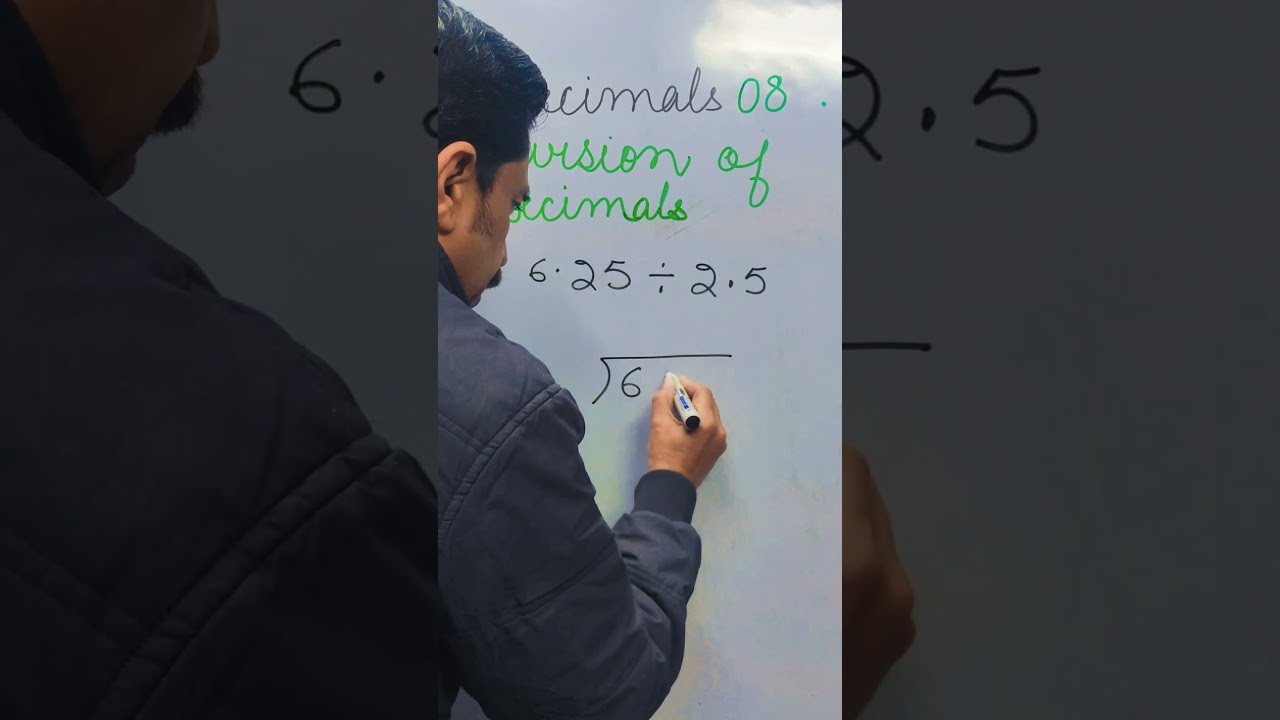 ecimals 08
vision of
ecimals
6.25 ÷ 2.5
6